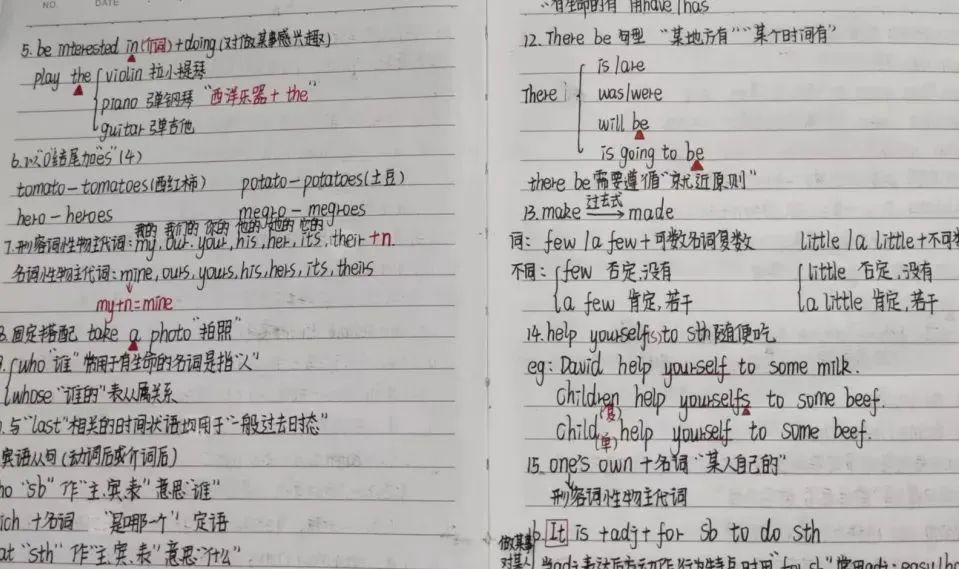 NO.
DATE
5. be interested in(介词)+doing(对做某事感兴趣)
play the violin 拉小提琴
piano 弹钢琴 "西洋乐器+the"
guitar 弹吉他
6.以"o"结尾加"es"(4)
tomato-tomatoes(西红柿) potato-potatoes(土豆)
hero-heroes megro-megroes
我的 我们的 你的 他的 她的 它的
7.形容词性物主代词:my,our,your,his,her,its,their+n.
名词性物主代词:mine,ours,yours,his,hers,its,theirs
my+n=mine
8.固定搭配 take a photo "拍照"
9. who "谁" 常用于有生命的名词是指"人"
whose "谁的" 表从属关系
.与"last"相关的时间状语均用于"一般过去时态"
宾语从句(动词后或介词后)
ho "sb" 作"主.宾.表" 意思"谁"
ich +名词 "是哪一个" 定语
at "sth" 作"主.宾.表" 意思"什么"
有生命的有 用have/has
12. There be 句型 "某地方有" "某个时间有"
There is/are
was/were
will be
is going to be
there be 需要遵循"就近原则"
13.make 过去式 made
词: few/a few+可数名词复数 little/a little+不可数
不同: few 否定,没有 little 否定,没有
a few 肯定,若干 a little 肯定,若干
14.help yourself(s)to sth 随便吃
eg: David help yourself to some milk.
Children help yourselfs to some beef.
(复)
Child help yourself to some beef.
(单)
15. one's own +名词 "某人自己的"
形容词性物主代词
16. It is +adj+ for sb to do sth
做某事
对某人
当adj表达后方动作行为特点时用"for sb" 常用adj:easy/ha